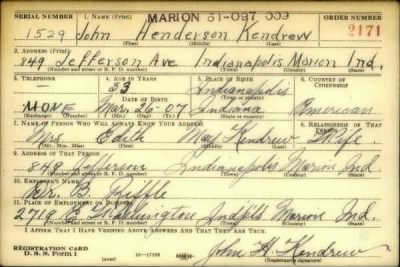 SERIAL NUMBER 1. NAME (Print) MARION 31-097 009 ORDER NUMBER
1529 John Henderson Kendrew 2171
(First) (Middle) (Last)
2. ADDRESS (Print)
849 Jefferson Ave Indianapolis Marion Ind.
(Number and street or R. F. D. number) (Town) (County) (State)
3. TELEPHONE 4. AGE IN YEARS 5. PLACE OF BIRTH 6. COUNTRY OF CITIZENSHIP
33 Indianapolis
DATE OF BIRTH
NONE Mar. 26-07 Indiana American
7. NAME OF PERSON WHO WILL ALWAYS KNOW YOUR ADDRESS 8. RELATIONSHIP OF THAT PERSON
Mrs. Edith May Kendrew Wife
(Mr., Mrs., Miss) (First) (Middle) (Last)
9. ADDRESS OF THAT PERSON
849 Jefferson Indianapolis Marion Ind
(Number and street or R. F. D. number) (Town) (County) (State)
10. EMPLOYER'S NAME
B.
11. PLACE OF EMPLOYMENT OR BUSINESS
2719 E Washington Indpls Marion Ind.
(Number and street or R. F. D. number) (Town) (County) (State)
I AFFIRM THAT I HAVE VERIFIED ABOVE ANSWERS AND THAT THEY ARE TRUE.
REGISTRATION CARD
D. S. S. Form 1 16-17105 John H. Kendrew
(Registrant's signature)